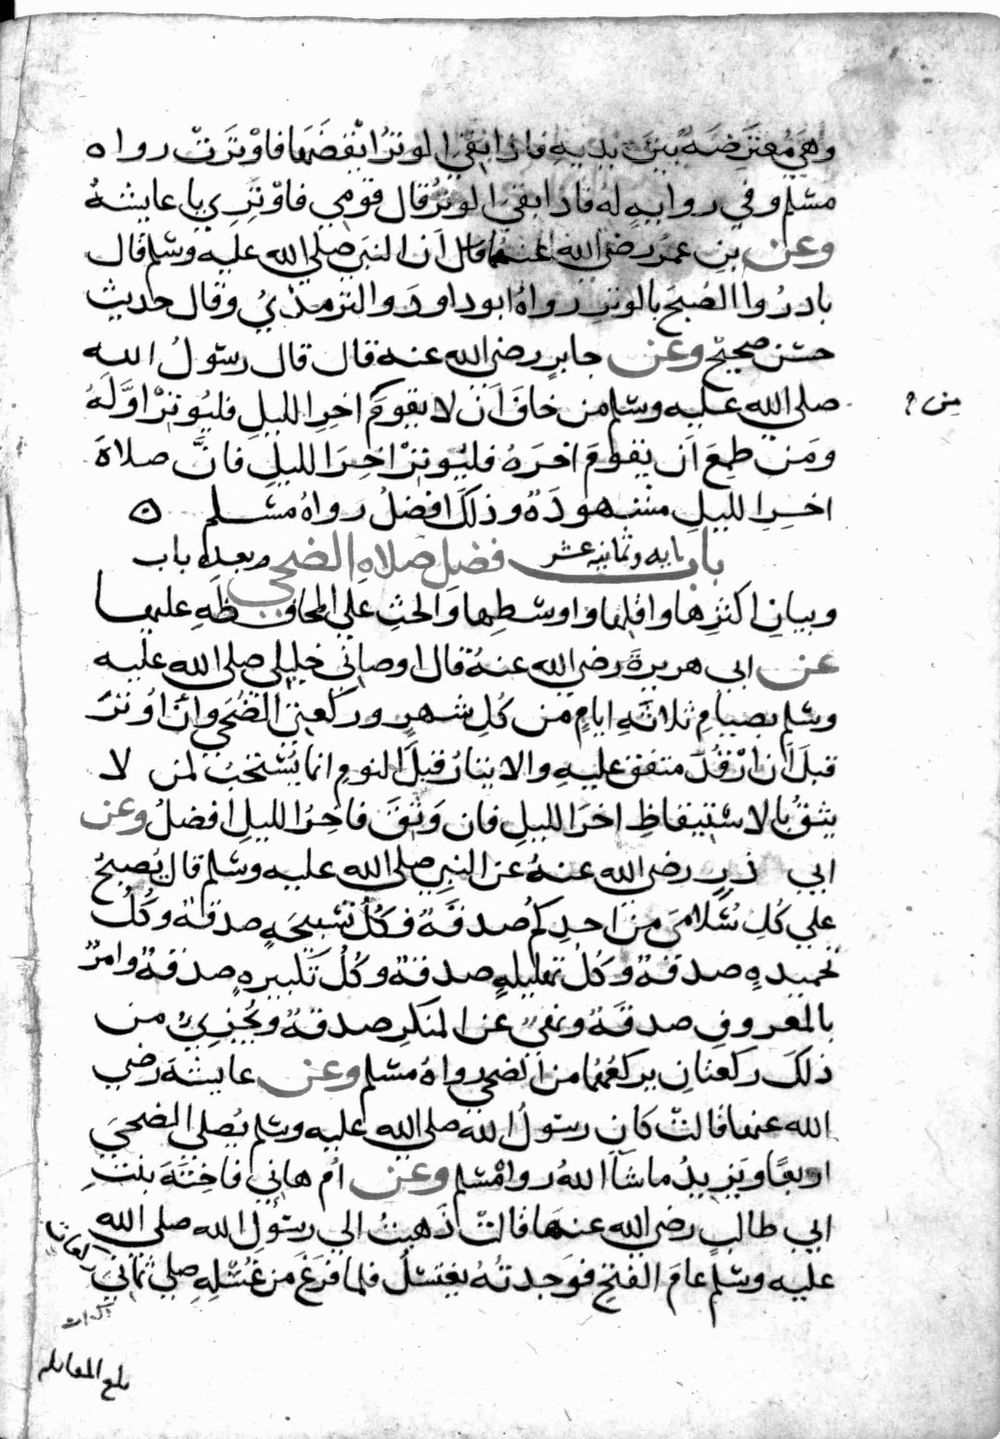 وهي معترضة بين يديه فاذا بقي الوتر ايقضها فاوترت رواه
مسلم وفي رواية له فاذا بقي الوتر قال قومي فاوتري يا عايشة
وعن بن عمر رضي الله عنهما قال ان النبي صلى الله عليه وسلم قال
بادروا الصبح بالوتر رواه ابو داود والترمذي وقال حديث
حسن صحيح وعن جابر رضي الله عنه قال قال رسول الله
صلى الله عليه وسلم من خاف ان لا يقوم اخر الليل فليوتر اوله
من
ومن طمع ان يقوم اخره فليوتر اخر الليل فان صلاة
اخر الليل مشهودة وذلك افضل رواه مسلم ه
باب فضل صلاة الضحى
وبيان اكثرها واقلها واوسطها والحث على المحافظة عليها
عن ابي هريرة رضي الله عنه قال اوصاني خليلي صلى الله عليه
وسلم بصيام ثلاثة ايام من كل شهر وركعتي الضحى وان اوتر
قبل ان ارقد متفق عليه والايتار قبل النوم انما يستحب لمن لا
يثق بالاستيقاظ اخر الليل فان وثق فاخر الليل افضل وعن
ابي ذر رضي الله عنه عن النبي صلى الله عليه وسلم قال يصبح
على كل سلامى من احدكم صدقة فكل تسبيحة صدقة وكل
تحميدة صدقة وكل تهليلة صدقة وكل تكبيرة صدقة وامر
بالمعروف صدقة ونهي عن المنكر صدقة ويجزي من
ذلك ركعتان يركعهما من الضحى رواه مسلم وعن عايشة رضي
الله عنها قالت كان رسول الله صلى الله عليه وسلم يصلي الضحى
اربعا ويزيد ما شاء الله رواه مسلم وعن ام هاني فاختة بنت
ابي طالب رضي الله عنها قالت ذهبت الى رسول الله صلى الله
عليه وسلم عام الفتح فوجدته يغتسل فلما فرغ من غسله صلى ثماني
ركعات
بلغ المقابله